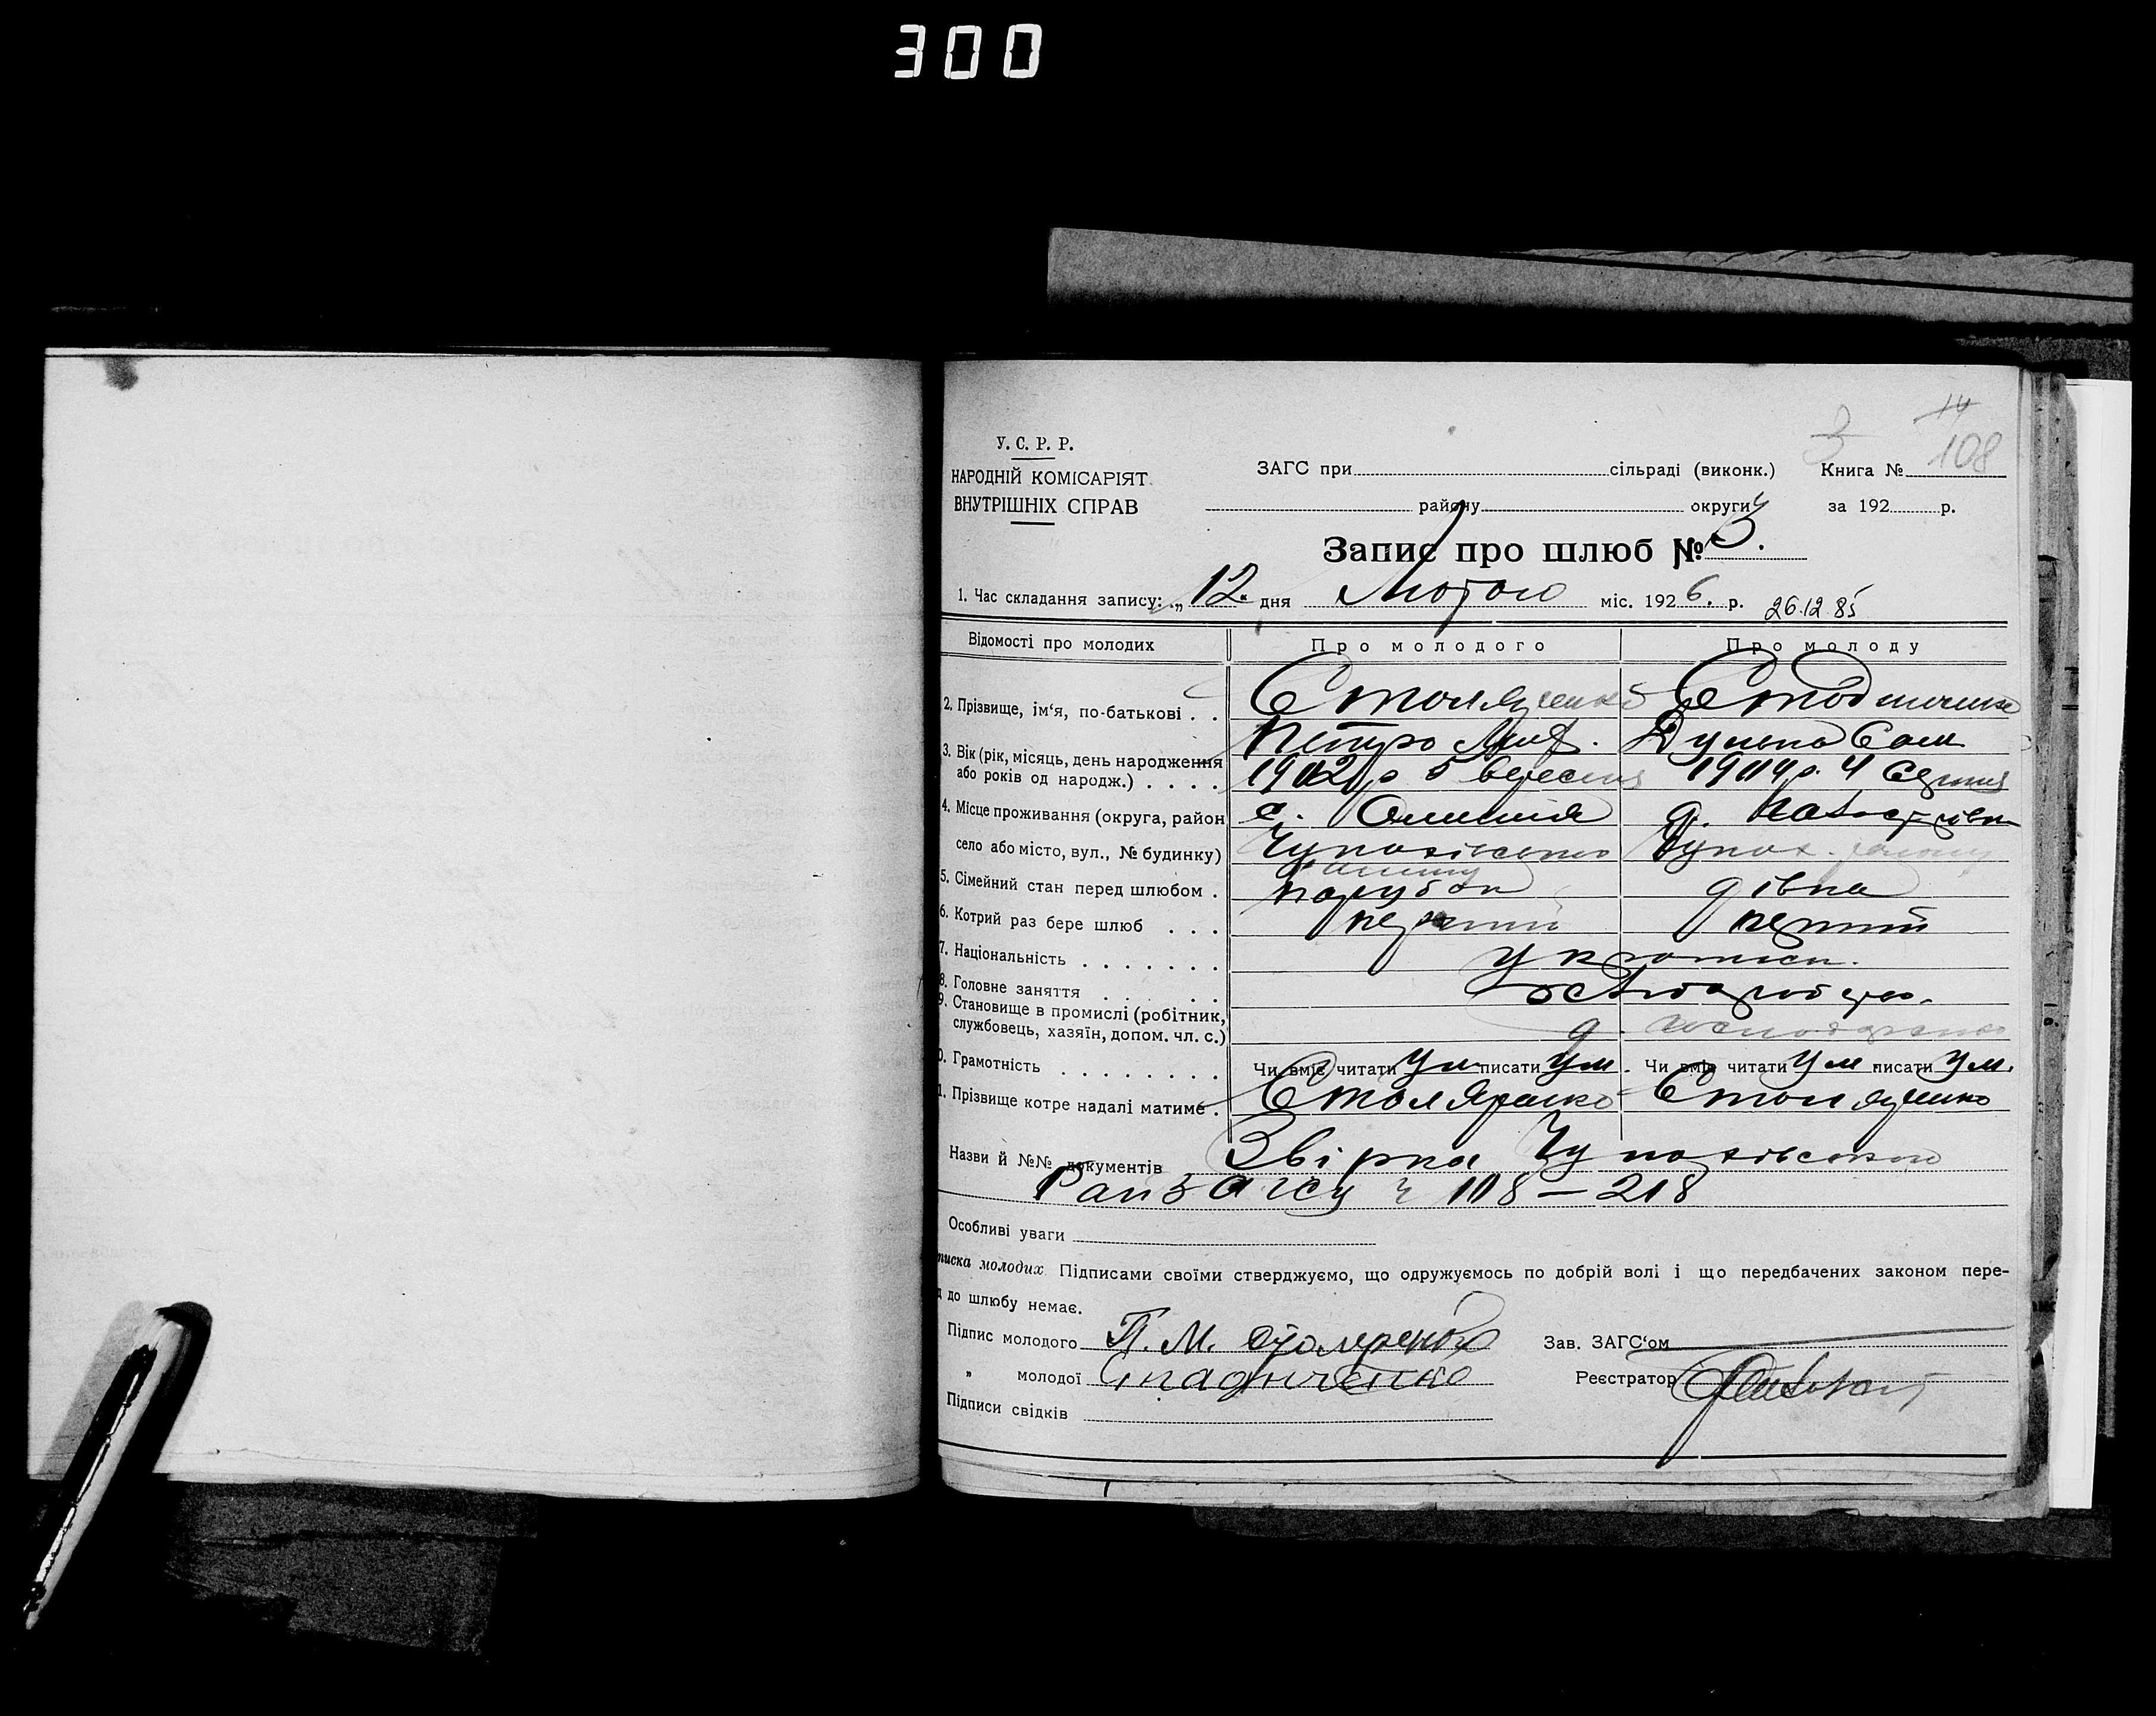 300
14
3 108
У. С. Р. Р.
НАРОДНІЙ КОМІСАРІЯТ
ВНУТРІШНІХ СПРАВ
ЗАГС при сільраді (виконк.) Книга №
району округи за 192 р.
Запис про шлюб № 3.
1. Час складання запису: „ 12. дня Лютого міс. 1926. р. 26.12.85
Відомості про молодих Про молодого Про молоду
2. Прізвище, ім‘я, по-батькові . . Столяренко
Петро
3. Вік (рік, місяць, день народження
або років од народж.) . . . . 1902 р 5 вересня 1904 р. 4 серпня
4. Місце проживання (округа, район с. Олешня
село або місто, вул., № будинку) Чупахівського Чупах. району
району
5. Сімейний стан перед шлюбом . парубок дівка
6. Котрий раз бере шлюб . . . перший перший
7. Національність . . . . . . . українск.
8. Головне заняття . . . . . . хлібороб
9. Становище в промислі (робітник,
службовець, хазяїн, допом. чл. с.)
0. Грамотність . . . . . . . . Чи вміє читати ум писати ум. Чи вміє читати ум писати ум.
1. Прізвище котре надалі матиме . Столяренко Столяренко
Назви й №№ документів Звірка Чупахівського
Райзагсу ч 108 — 218
Особливі уваги
писка молодих Підписами своїми стверджуємо, що одружуємось по добрій волі і що передбачених законом пере-
д до шлюбу немає.
Підпис молодого П. М. Столяренко Зав. ЗАГС‘ом
„ молодої Реєстратор
Підписи свідків